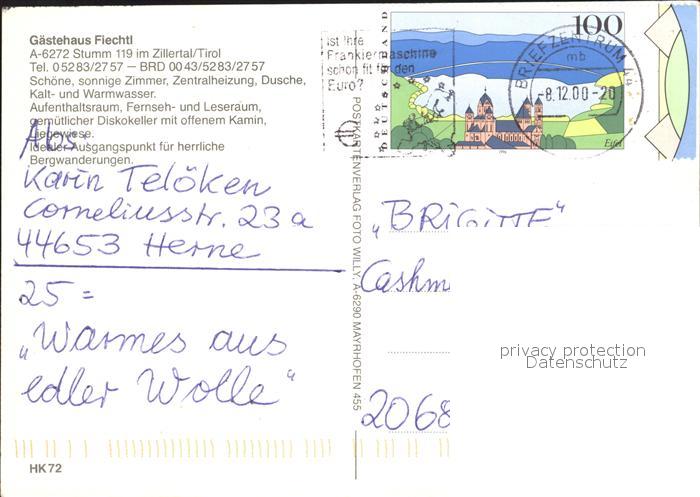 Gästehaus Fiechtl
A-6272 Stumm 119 im Zillertal/Tirol
Tel. 05283/2757 — BRD 0043/5283/2757
Schöne, sonnige Zimmer, Zentralheizung, Dusche,
Kalt- und Warmwasser.
Aufenthaltsraum, Fernseh- und Leseraum,
gemütlicher Diskokeller mit offenem Kamin,
Liegewiese.
Idealer Ausgangspunkt für herrliche
Bergwanderungen.
Abs.
Karin Telöken
Corneliusstr. 23a
44653 Herne
25 =
„Warmes aus
edler Wolle“
HK 72
POSTKARTENVERLAG FOTO WILLY, A-6290 MAYRHOFEN 455
Ist Ihre
Frankiermaschine
schon fit für den
Euro?
DEUTSCHLAND
100
Eifel
BRIEFZENTRUM
mb
-8.12.00-20
„BRIGITTE“
Cashm
2068
privacy protection
Datenschutz